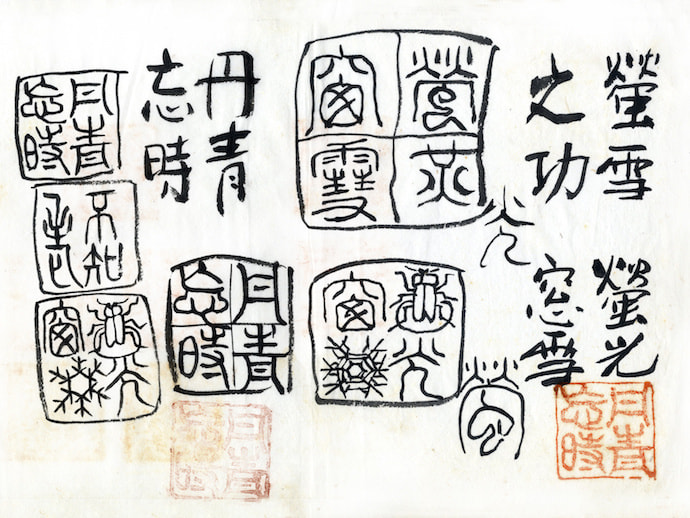 螢雪
之功
螢光
窗雪
光
丹青
忘時
丹青
忘時
不知
螢光
窓雪
丹青
忘時
光
窗
螢
丹青
忘時
光
窗
丹青
忘時
丹青
忘時